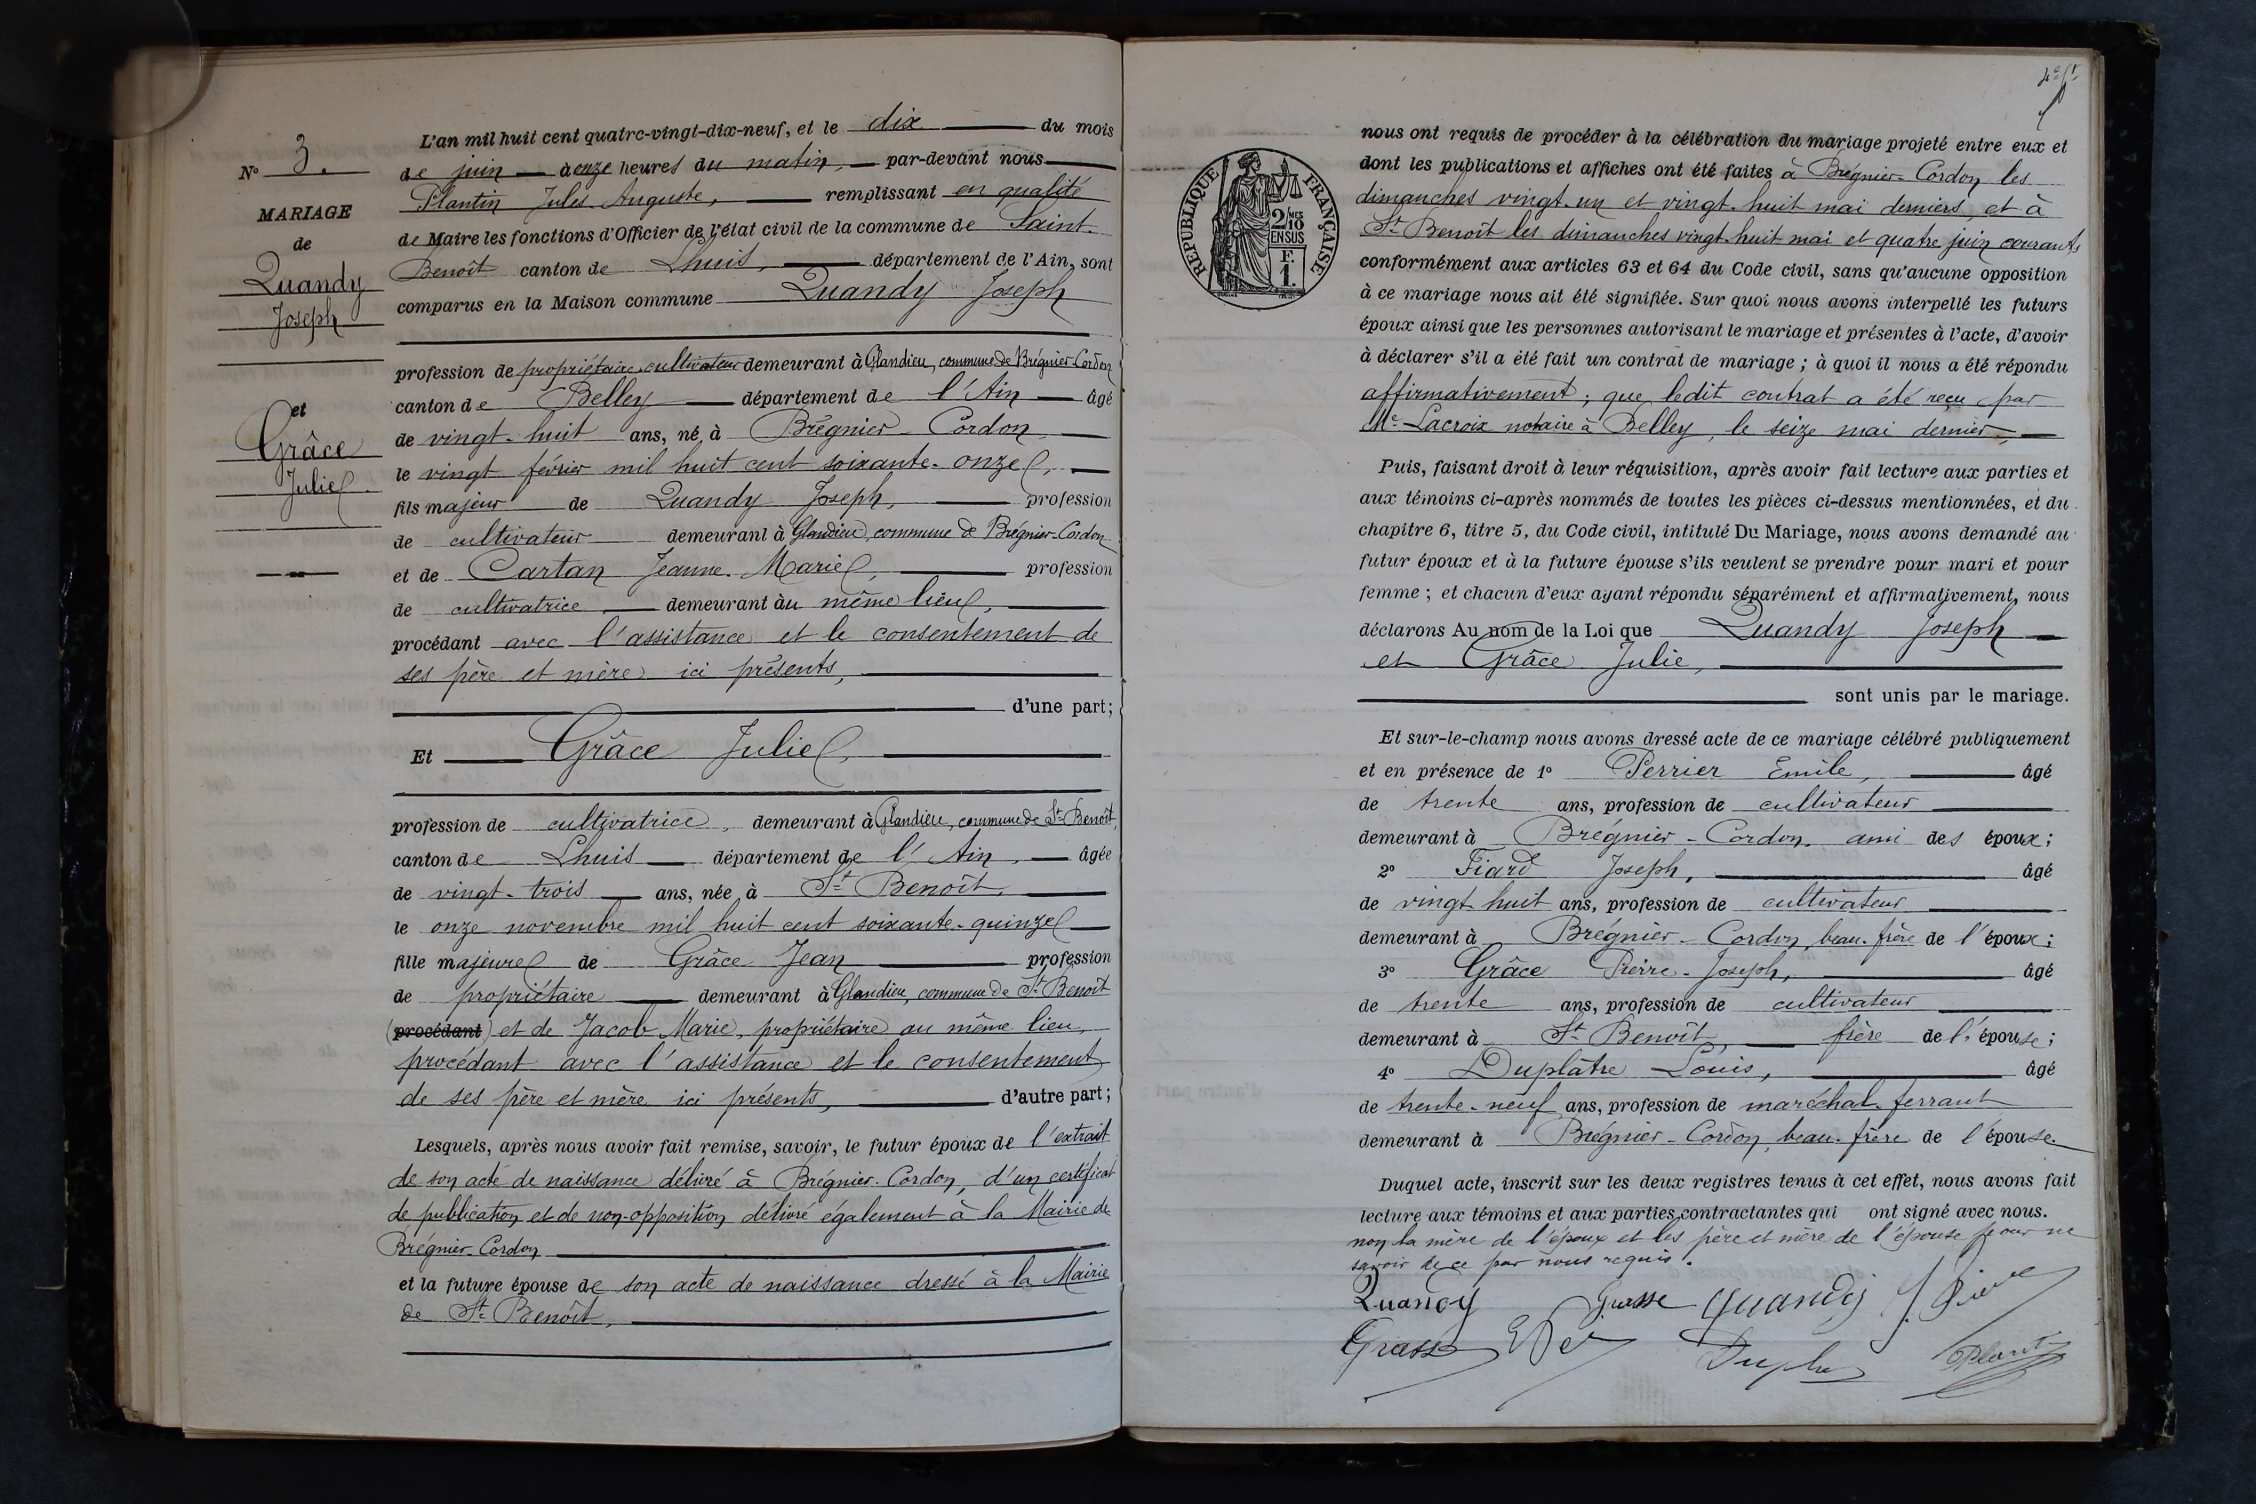 N° 3.
MARIAGE
de
Quandy
Joseph
et
Grâce
Julie
L'an mil huit cent quatre-vingt-dix-neuf, et le dix du mois
de juin à onze heures du matin, par-devant nous
Plantin Jules Auguste, remplissant en qualité
de Maire les fonctions d'Officier de l'état civil de la commune de Saint-
Benoît canton de Lhuis, département de l'Ain, sont
comparus en la Maison commune Quandy Joseph
profession de propriétaire cultivateur demeurant à Glandieu, commune de Brégnier-Cordon
canton de Belley département de l'Ain âgé
de vingt-huit ans, né à Brégnier-Cordon
le vingt février mil huit cent soixante-onze,
fils majeur de Quandy Joseph, profession
de cultivateur demeurant à Glandieu, commune de Brégnier-Cordon
et de Cartan Jeanne-Marie, profession
de cultivatrice demeurant au même lieu,
procédant avec l'assistance et le consentement de
ses père et mère ici présents,
d'une part;
Et Grâce Julie,
profession de cultivatrice, demeurant à Glandieu, commune de St Benoît,
canton de Lhuis département de l'Ain, âgée
de vingt-trois ans, née à St Benoît,
le onze novembre mil huit cent soixante-quinze
fille majeure de Grâce Jean profession
de propriétaire demeurant à Glandieu, commune de St Benoît
(procédant) et de Jacob Marie, propriétaire au même lieu,
procédant avec l'assistance et le consentement
de ses père et mère ici présents, d'autre part;
Lesquels, après nous avoir fait remise, savoir, le futur époux de l'extrait
de son acte de naissance délivré à Brégnier-Cordon, d'un certificat
de publication et de non-opposition délivré également à la Mairie de
Brégnier-Cordon
et la future épouse de son acte de naissance dressé à la Mairie
de St Benoît,
RÉPUBLIQUE FRANÇAISE
2/10 MES
EN SUS
F.
1.
nous ont requis de procéder à la célébration du mariage projeté entre eux et
dont les publications et affiches ont été faites à Brégnier-Cordon les
dimanches vingt-un et vingt-huit mai derniers et à
St Benoît les dimanches vingt-huit mai et quatre juin courants
conformément aux articles 63 et 64 du Code civil, sans qu'aucune opposition
à ce mariage nous ait été signifiée. Sur quoi nous avons interpellé les futurs
époux ainsi que les personnes autorisant le mariage et présentes à l'acte, d'avoir
à déclarer s'il a été fait un contrat de mariage; à quoi il nous a été répondu
affirmativement; que ledit contrat a été reçu par
Me Lacroix notaire à Belley, le seize mai dernier,
Puis, faisant droit à leur réquisition, après avoir fait lecture aux parties et
aux témoins ci-après nommés de toutes les pièces ci-dessus mentionnées, et du
chapitre 6, titre 5, du Code civil, intitulé Du Mariage, nous avons demandé au
futur époux et à la future épouse s'ils veulent se prendre pour mari et pour
femme; et chacun d'eux ayant répondu séparément et affirmativement, nous
déclarons Au nom de la Loi que Quandy Joseph
et Grâce Julie,
sont unis par le mariage.
Et sur-le-champ nous avons dressé acte de ce mariage célébré publiquement
et en présence de 1° Perrier Emile, âgé
de trente ans, profession de cultivateur
demeurant à Brégnier-Cordon, ami des époux;
2° Fiard Joseph, âgé
de vingt huit ans, profession de cultivateur
demeurant à Brégnier-Cordon, beau-frère de l'époux;
3° Grâce Pierre-Joseph, âgé
de trente ans, profession de cultivateur
demeurant à St Benoît, frère de l'épouse;
4° Duplâtre Louis, âgé
de trente-neuf ans, profession de maréchal-ferrant
demeurant à Brégnier-Cordon, beau-frère de l'épouse.
Duquel acte, inscrit sur les deux registres tenus à cet effet, nous avons fait
lecture aux témoins et aux parties contractantes qui ont signé avec nous.
non la mère de l'époux et les père et mère de l'épouse pour ne
savoir de ce par nous requis.
Quandy Grasse Quandy
Grasse